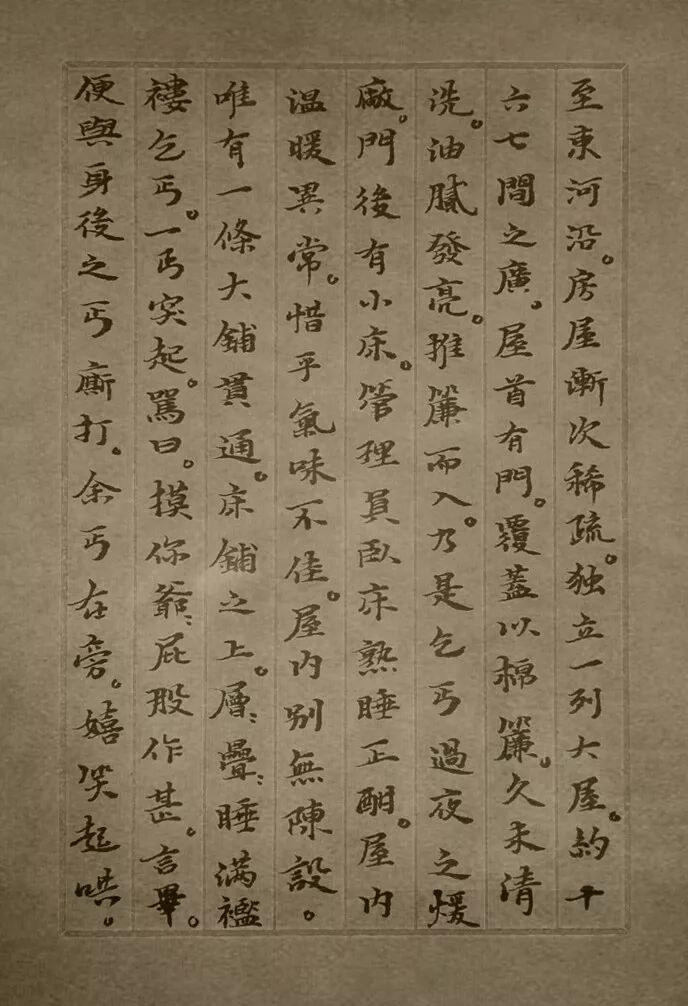 至東河沿。房屋漸次稀疏。独立一列大屋。約十
六七間之廣。屋首有門。覆蓋以棉簾。久未清
洗。油膩發亮。推簾而入。乃是乞丐過夜之煖
廠。門後有小床。管理員臥床熟睡正酣。屋内
温暖異常。惜乎氣味不佳。屋内別無陳設。
唯有一條大鋪貫通。床鋪之上。層〻疊〻睡满襤
褸乞丐。一丐突起。罵曰。摸你爺〻屁股作甚。言畢。
便與身後之丐廝打。余丐在旁。嬉笑起哄。